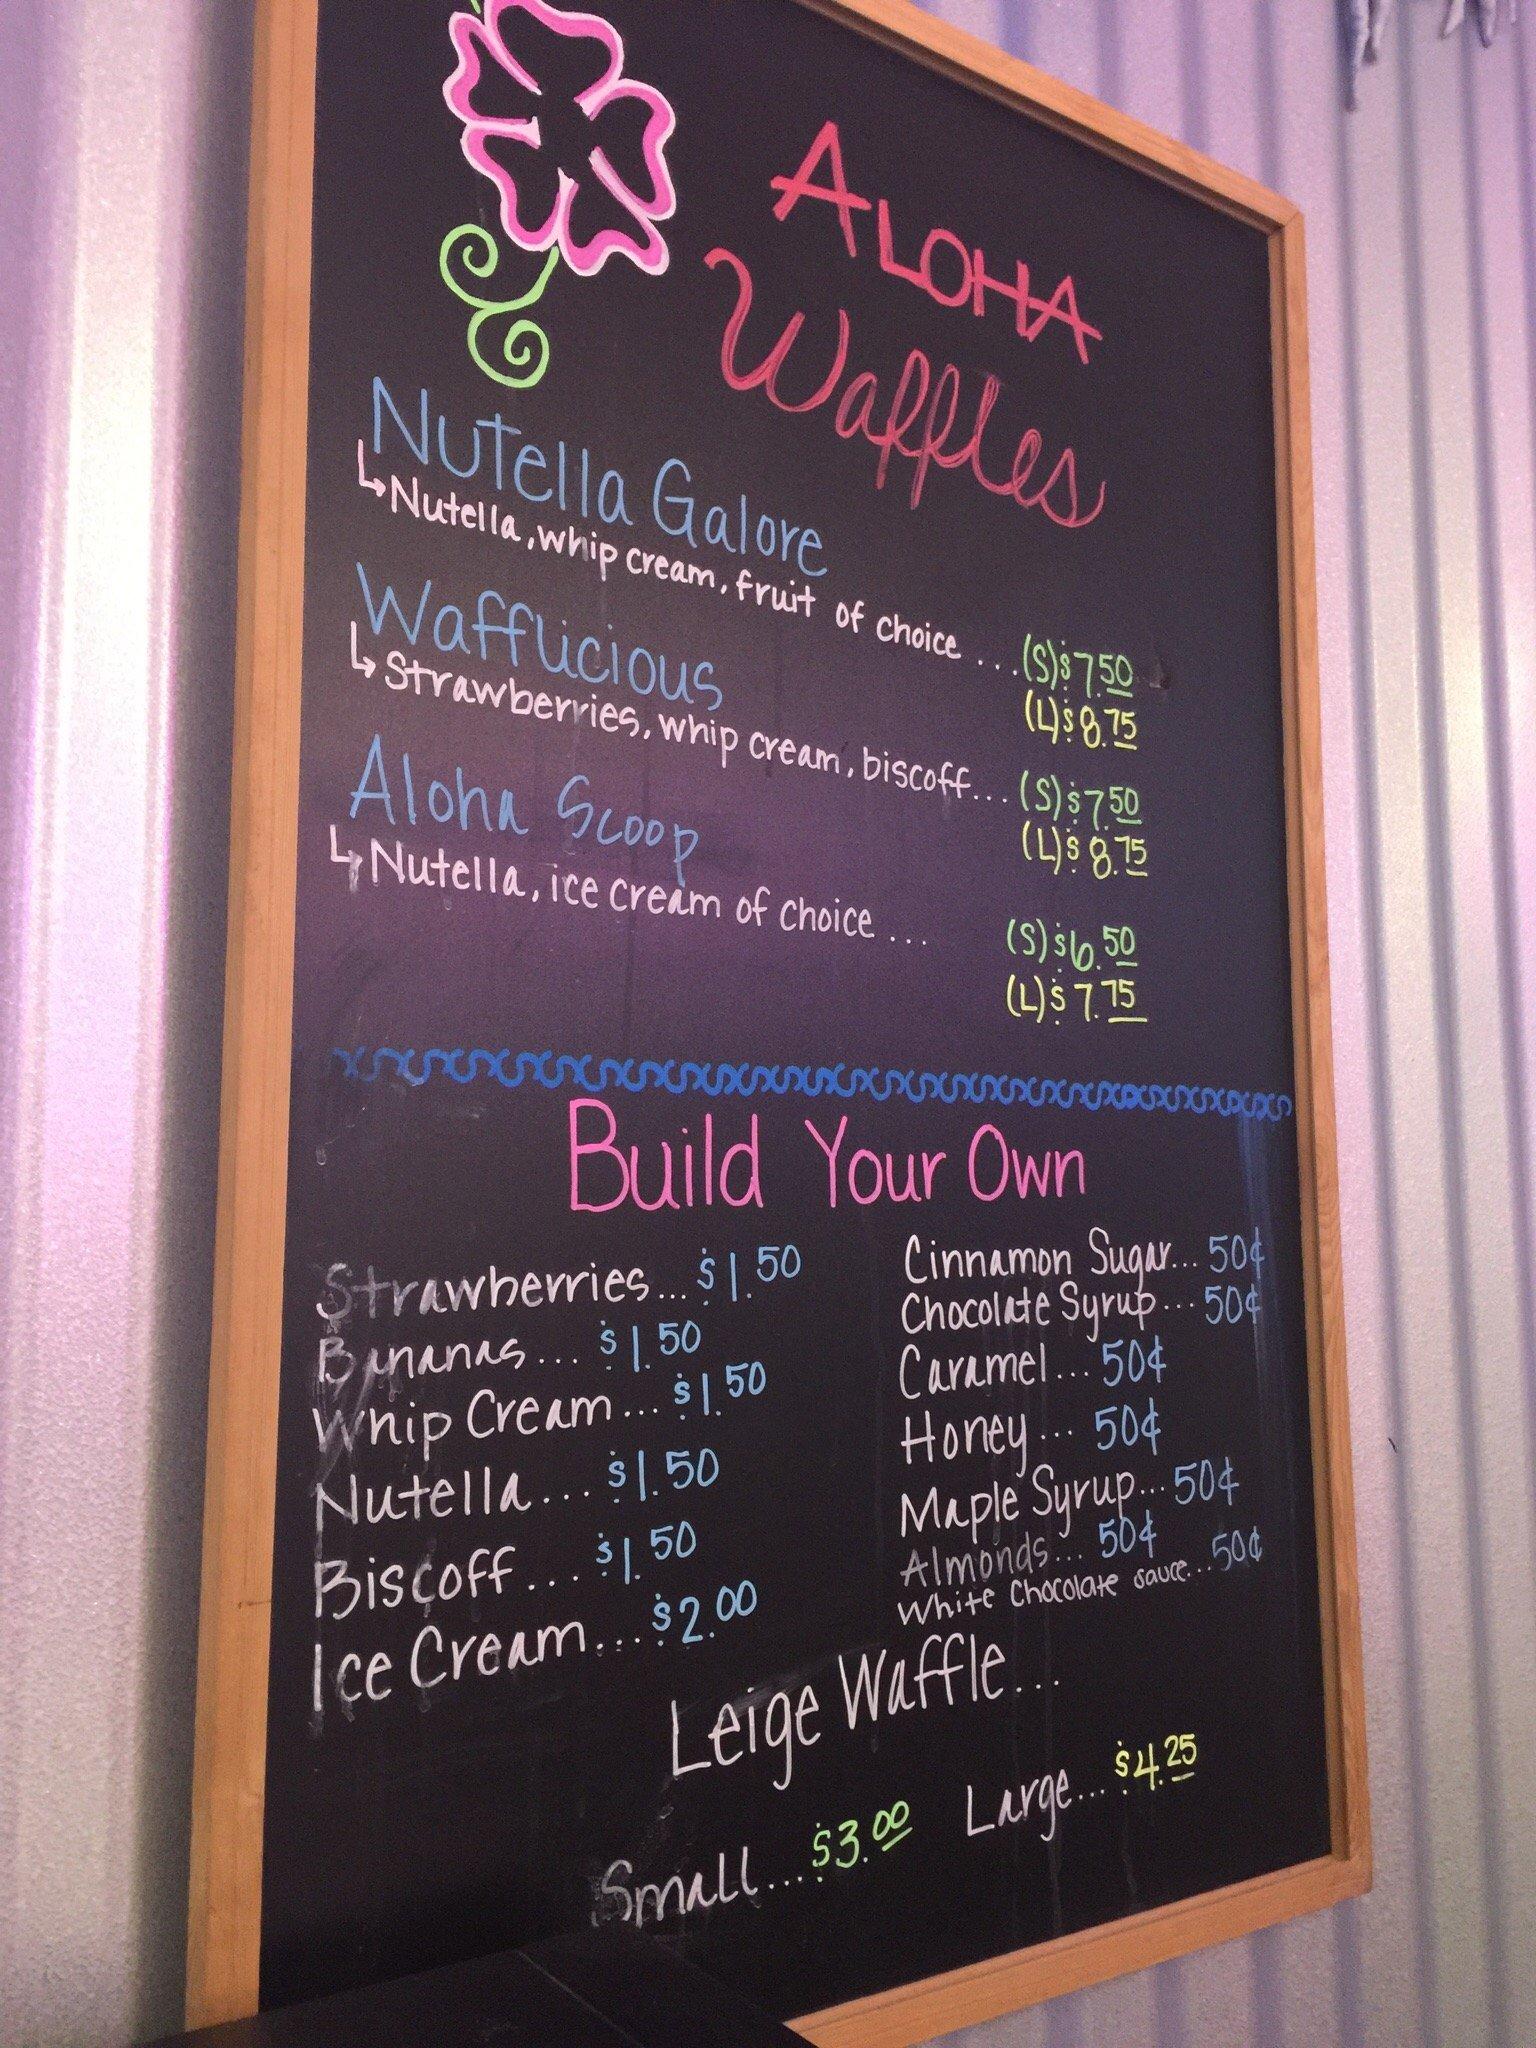 ALOHA
Waffles
Nutella Galore
↳Nutella, whip cream, fruit of choice ... (S) $7.50
(L) $8.75
Wafflicious
↳Strawberries, whip cream, biscoff... (S) $7.50
(L) $8.75
Aloha Scoop
↳Nutella, ice cream of choice ... (S) $6.50
(L) $7.75
Build Your Own
Strawberries... $1.50
Bananas... $1.50
Whip Cream... $1.50
Nutella... $1.50
Biscoff... $1.50
Ice Cream... $2.00
Cinnamon Sugar... 50¢
Chocolate Syrup... 50¢
Caramel... 50¢
Honey... 50¢
Maple Syrup... 50¢
Almonds... 50¢
White Chocolate sauce... 50¢
Leige Waffle...
Small... $3.00 Large... $4.25